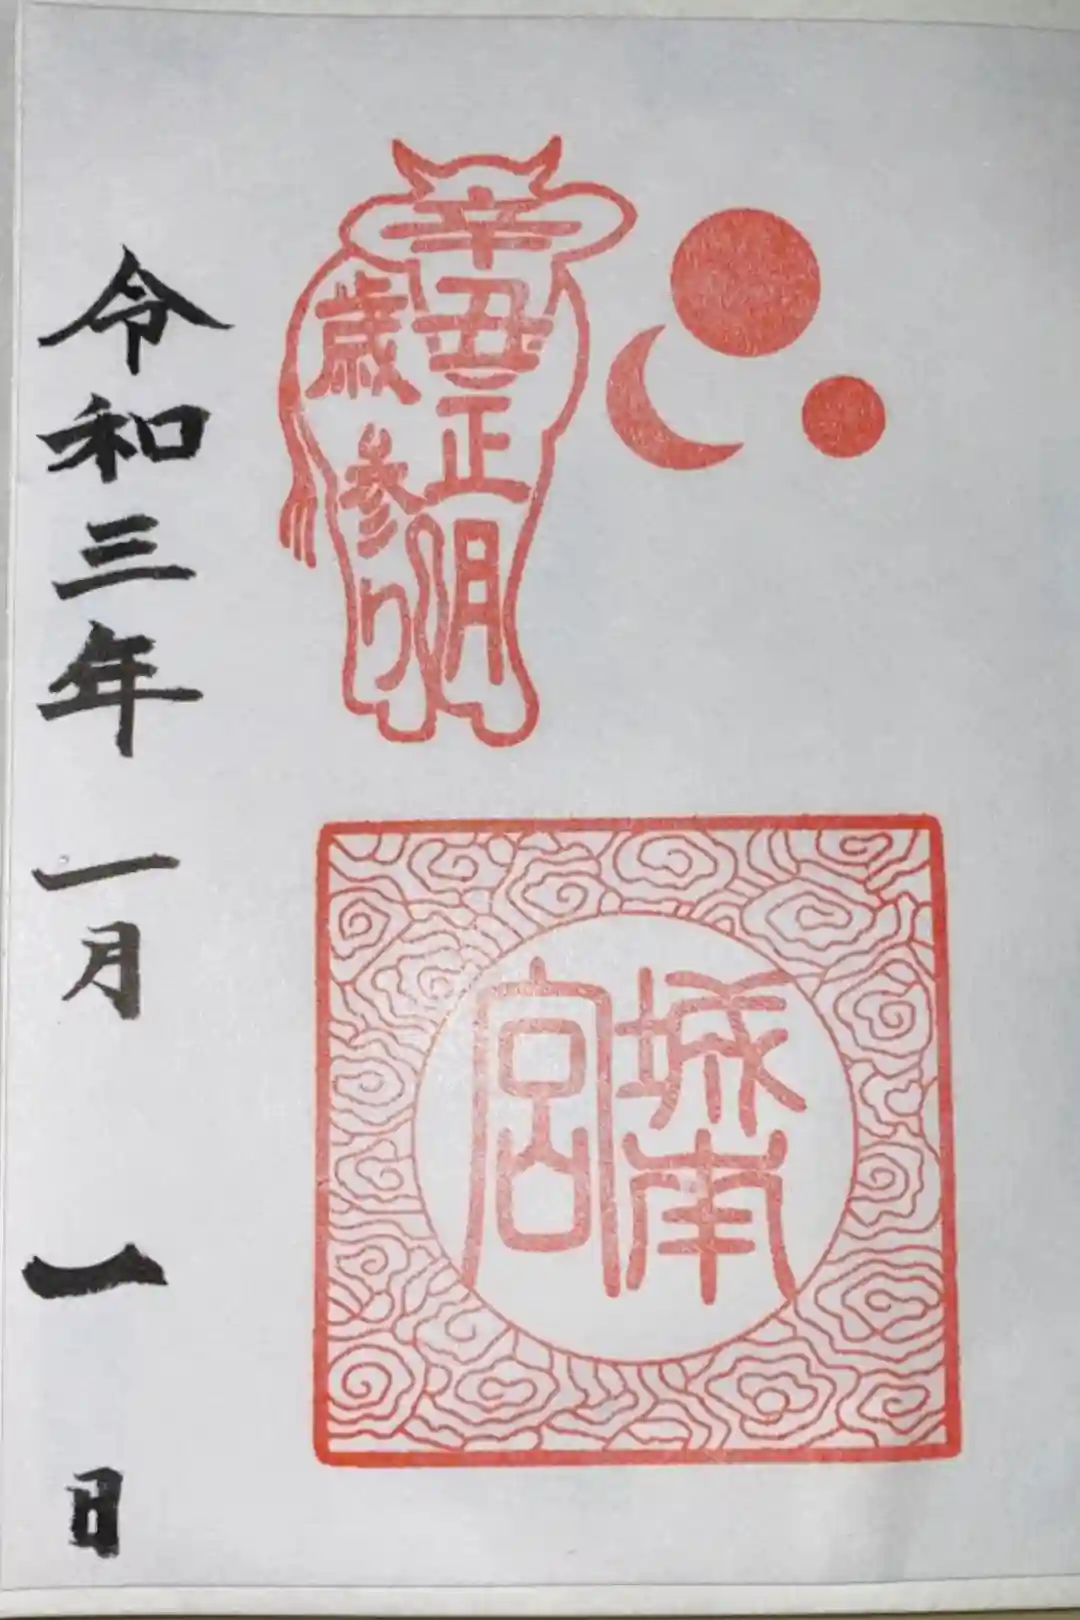 辛丑正月
歳参り
城南
宮
令和三年一月一日